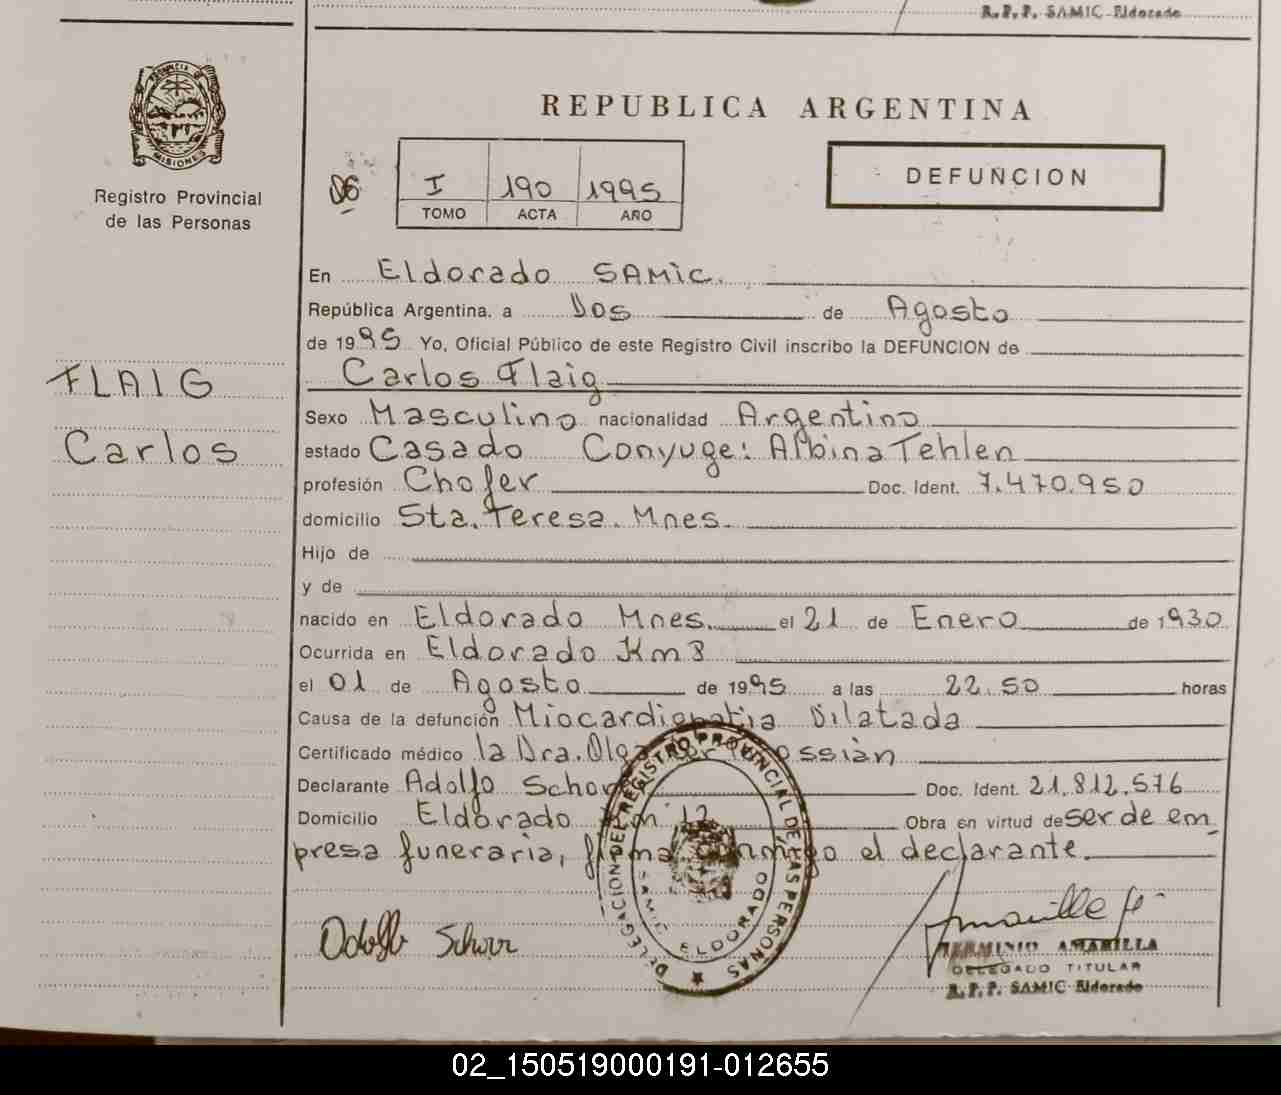 R.P.P. SAMIC Eldorado
PROVINCIA DE
MISIONES
Registro Provincial
de las Personas
REPUBLICA ARGENTINA
06
I 190 1995
TOMO ACTA AÑO
DEFUNCION
En Eldorado SAMIC.
República Argentina, a Dos de Agosto
de 1995 Yo, Oficial Público de este Registro Civil inscribo la DEFUNCION de
FLAIG
Carlos Flaig
Sexo Masculino nacionalidad Argentino
Carlos
estado Casado Conyuge: Albina Tehlen
profesión Chofer Doc. Ident. 7.470.950
domicilio Sta. Teresa. Mnes.
Hijo de
y de
nacido en Eldorado Mnes. el 21 de Enero de 1930
Ocurrida en Eldorado Km 8
el 01 de Agosto de 1995 a las 22.50 horas
Causa de la defunción Miocardiopatia Dilatada
Certificado médico la Dra. Olga
Declarante Adolfo Doc. Ident. 21.812.576
Domicilio Eldorado Km 12 Obra en virtud de ser de em
presa funeraria, firma conmigo el declarante.
DELEGACION DEL REGISTRO PROVINCIAL DE LAS PERSONAS
SAMIC ELDORADO
Adolfo
HERMINIO AMARILLA
DELEGADO TITULAR
R.P.P. SAMIC Eldorado
02_150519000191-012655